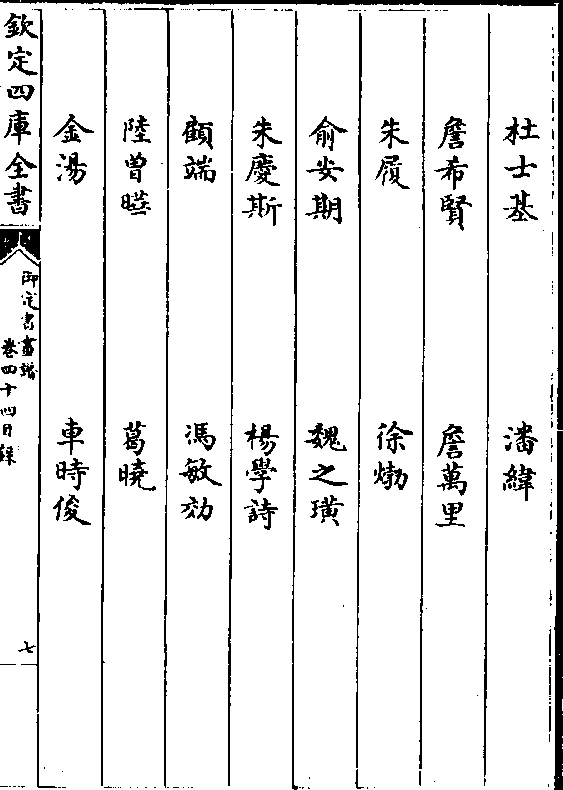 杜士基　潘緯
詹希賢　詹萬里
朱履　徐𤊹
俞安期　魏之璜
朱慶斯　楊學詩
顧端　馮敏効
陸曾曔　葛曉
金湯　車時俊
欽定四庫全書
御定書畫譜
卷四十四目録
七